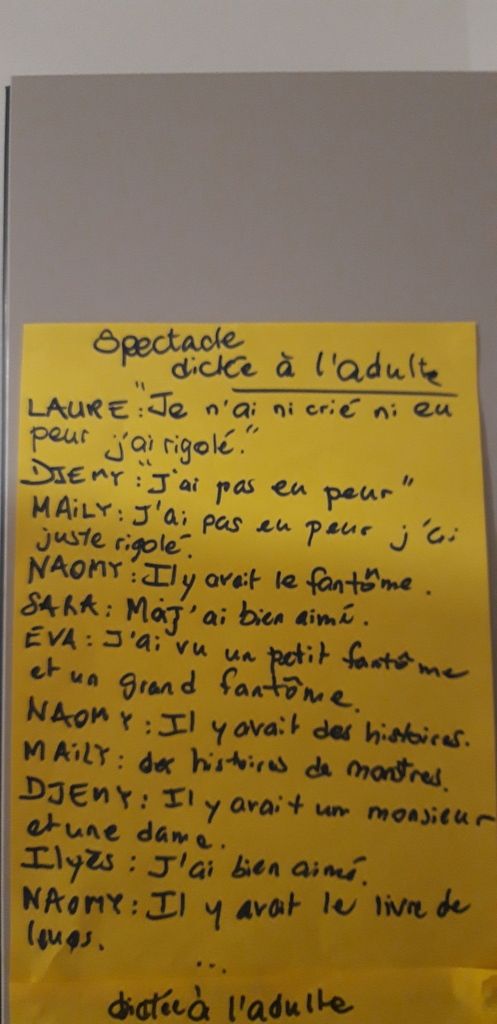 Spectacle
dictée à l'adulte
LAURE : "Je n'ai ni crié ni eu
peur j'ai rigolé."
DJEMY : "J'ai pas eu peur"
MAILY : J'ai pas eu peur j'ai
juste rigolé.
NAOMY : Il y avait le fantôme.
SARA : Moi j'ai bien aimé.
ÉVA : J'ai vu un petit fantôme
et un grand fantôme.
NAOMY : Il y avait des histoires.
MAILY : des histoires de monstres.
DJEMY : Il y avait un monsieur
et une dame.
Ilyès : J'ai bien aimé.
NAOMY : Il y avait le livre de
loups.
...
dictée à l'adulte